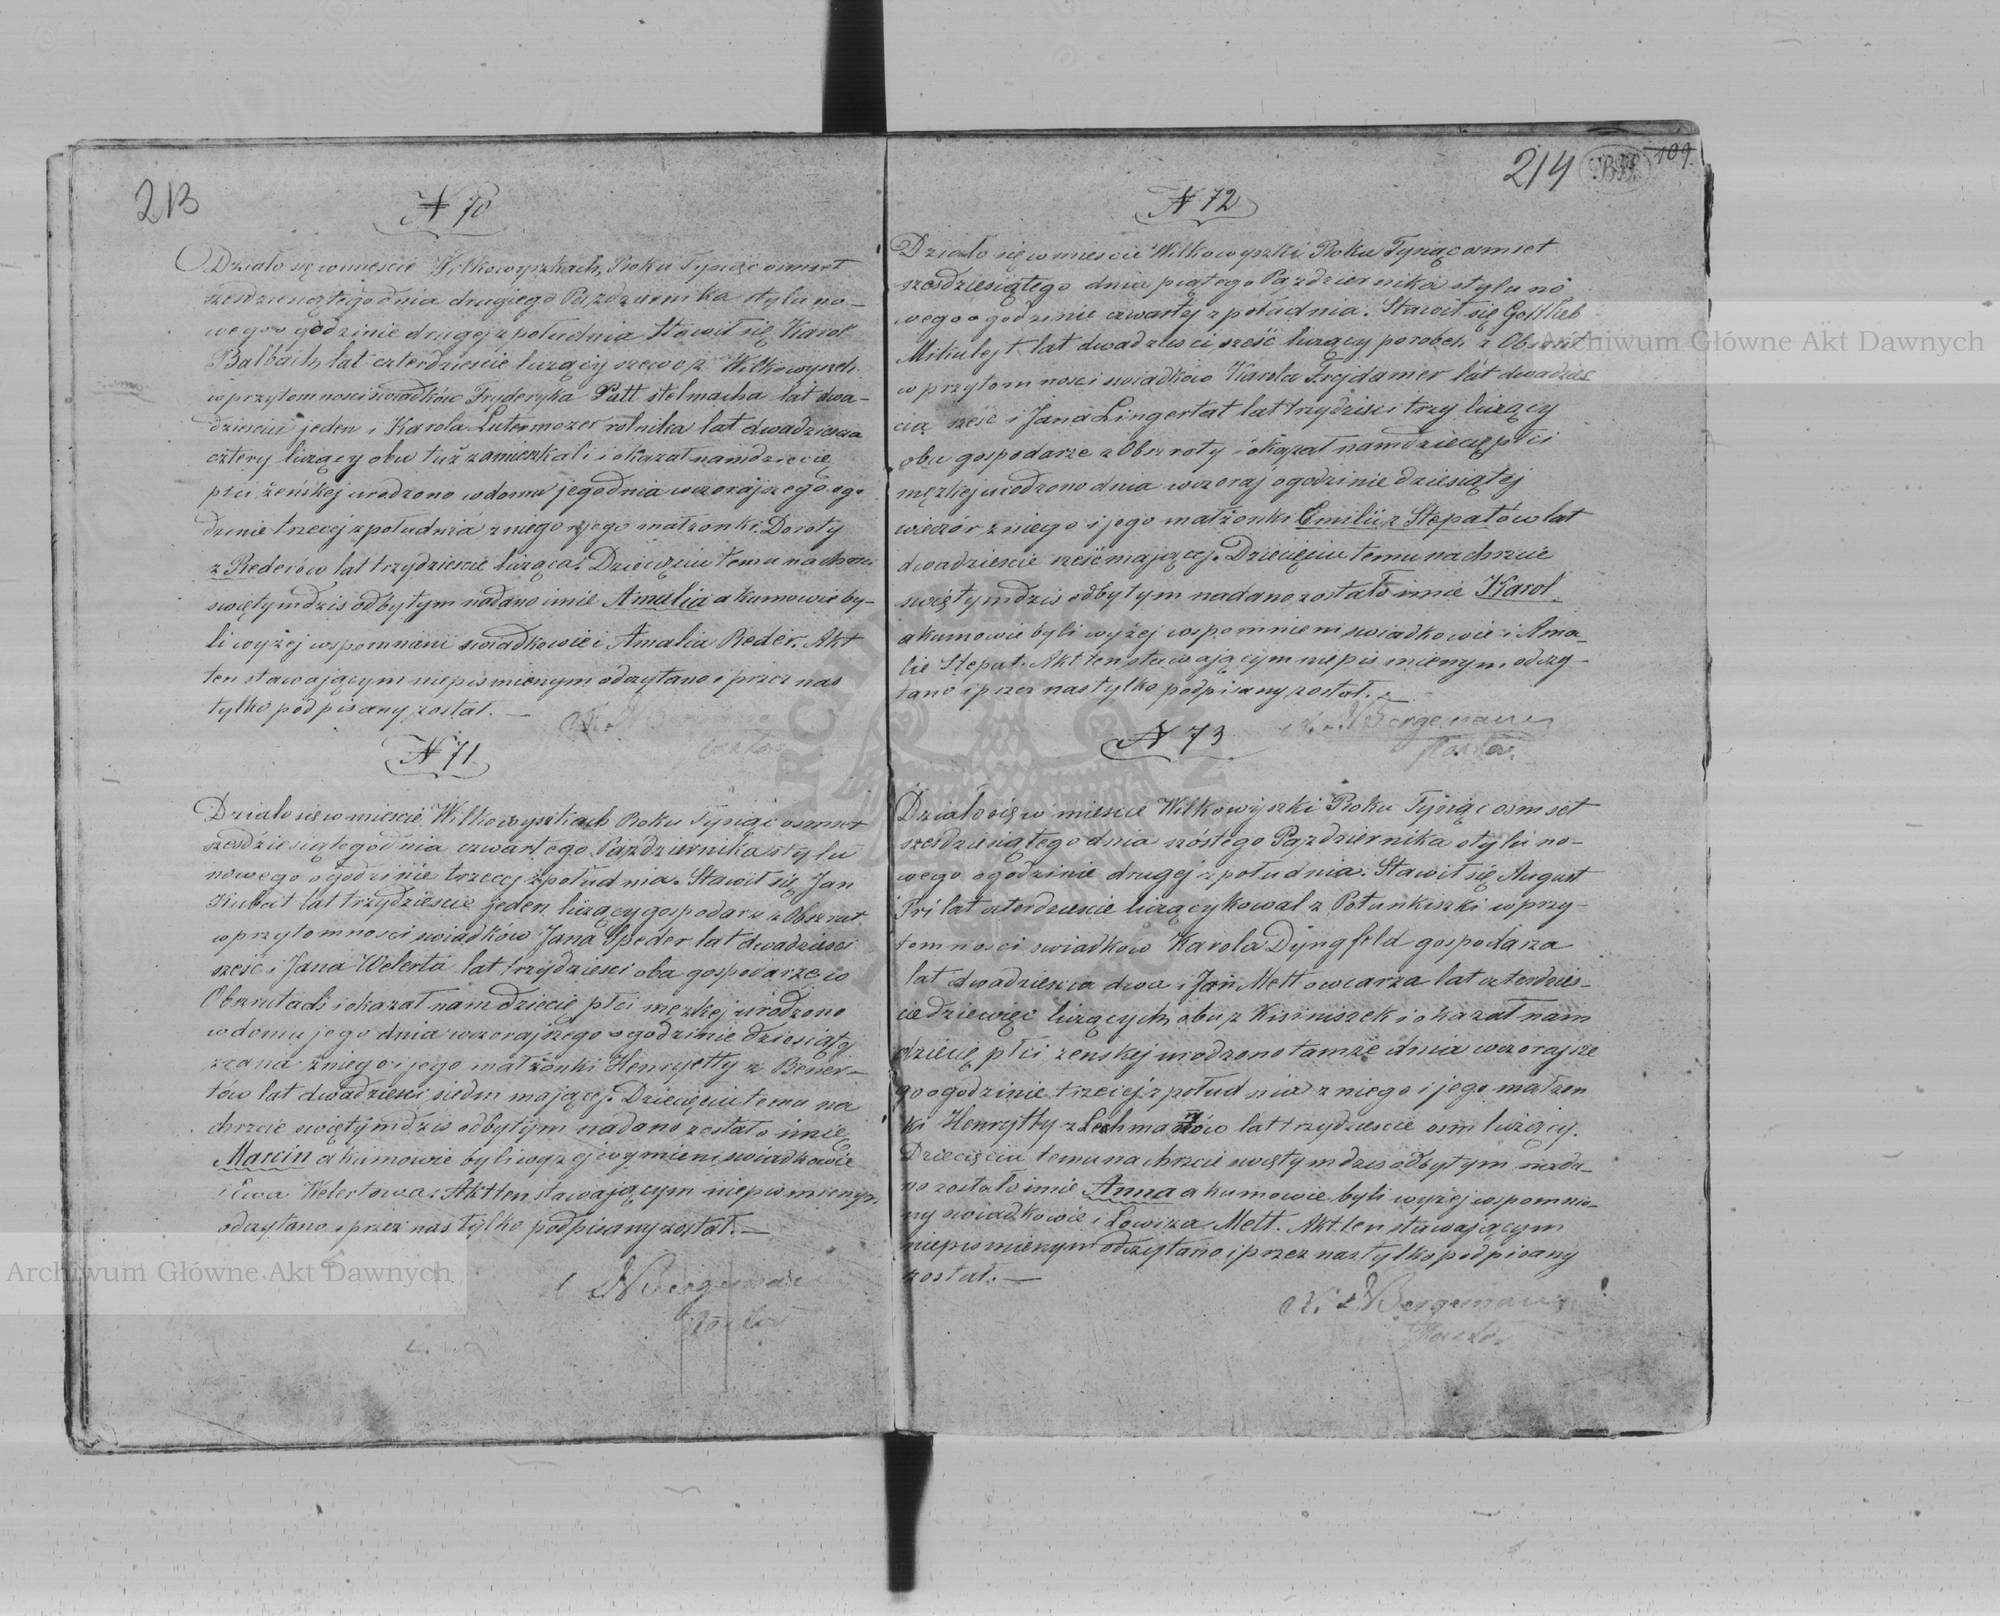 213
N 70
Działo się w mieście Wilkowyszkach, Roku Tysiąc ośmset
sześdziesiątego dnia drugiego Października stylu no-
wego o godzinie drugiej z południa Stawił się Karol
Balbach, lat czterdzieście liczący szewc z Wilkowyszek
w przytomności świadków Fryderyka Patt stelmacha lat dwa-
dzieście jeden i Karola Lutermozer rolnika lat dwadzieścia
cztery liczący obu tuż zamieszkali i okazał nam dziecię
płci żeńskiej urodzone w domu jego dnia wczorajszego o go-
dzinie trzeciej z południa z niego i jego małżonki Doroty
z Rederów lat trzydzieście licząca. Dziecięciu temu na chrzcie
świętym dziś odbytym nadano imie Amalia a kumowie by-
li wyżej wspomnieni świadkowie i Amalia Reder. Akt
ten stawającym niepiśmienym odczytano i przez nas
tylko podpisany został. —
N 71
Działo się w mieście Wilkowyszkach Roku Tysiąc ośmset
sześdziesiątego dnia czwartego Października stylu
nowego o godzinie trzeciej z południa. Stawił się Jan
Kubat lat trzydzieście jeden liczący gospodarz z Obszrut
w przytomności świadków Jana Speder lat dwadzieści
sześć i Jana Welerta lat trzydzieści oba gospodarze w
Obszrutach i okazał nam dziecię płci męzkiej urodzone
w domu jego dnia wczorajszego o godzinie dziesiątej
zrana z niego i jego małżonki Henryetty z Bener-
tów lat dwadzieści siedm mającej. Dziecięciu temu na
chrzcie świętym dziś odbytym nadano zostało imię
Marcin a kumowie byli wyżej wymieni świadkowie
i Ewa Welertowa. Akt ten stawającym niepiśmienym
odczytano i przez nas tylko podpisany został. —
Bergemann
Pastor
214
109.
N 72
Działo się w mieście Wilkowyszki Roku Tysiąc osmset
sześdziesiątego dnia piątego Października stylu no
wego o godzinie czwartej z południa. Stawił się Gottlieb
Mikulejt lat dwadzieści sześć liczący parobek z
w przytomności świadków Karola Frejdamer lat dwadzieś
cia sześć i Jana Lingertat lat trzydzieści trzy liczący
obu gospodarze z Obszroty i okazał nam dziecię płci
męzkiej urodzono dnia wczoraj o godzinie dziesiątej
wieczór z niego i jego małżonki Emilii z Stepatów lat
dwadzieście sześć mającej. Dziecięciu temu na chrzcie
świętym dziś odbytym nadano zostało imie Karol
a kumowie byli wyżej wspomnieni świadkowie i Ama-
lie Stepat. Akt ten stawającym niepiśmienym odczy-
tano i przez nas tylko podpisany został. —
Bergemann
Pastor.
N 73
Działo się w mieście Wilkowyszki Roku Tysiąc osmset
sześdziesiątego dnia szóstego Października stylu no-
wego o godzinie drugiej z południa. Stawił się August
Pril lat czterdzieście liczący kowal z Potunkiszki w przy-
tomności świadków Karola Dyngfeld gospodarza
lat dwadzieścia dwa i Jan Mett owczarza lat czterdzieś-
cie dziewięć liczących, obu z Kisiniszek i okazał nam
dziecię płci żenskiej urodzono tamże dnia wczorajsze
go o godzinie trzeciej z południa z niego i jego małżon
ki Henrytty z Lechmanów lat trzydzieście ośm liczący.
Dziecięciu temu na chrzcie świętym dziś odbytym nada-
no zostało imie Anna a kumowie byli wyżej wspomnie-
ny świadkowie i Lowiza Mett. Akt ten stawającym
niepiśmienym odczytano i przez nas tylko podpisany
został. —
Bergemann
Pastor
Archiwum Główne Akt Dawnych
Archiwum Główne Akt Dawnych